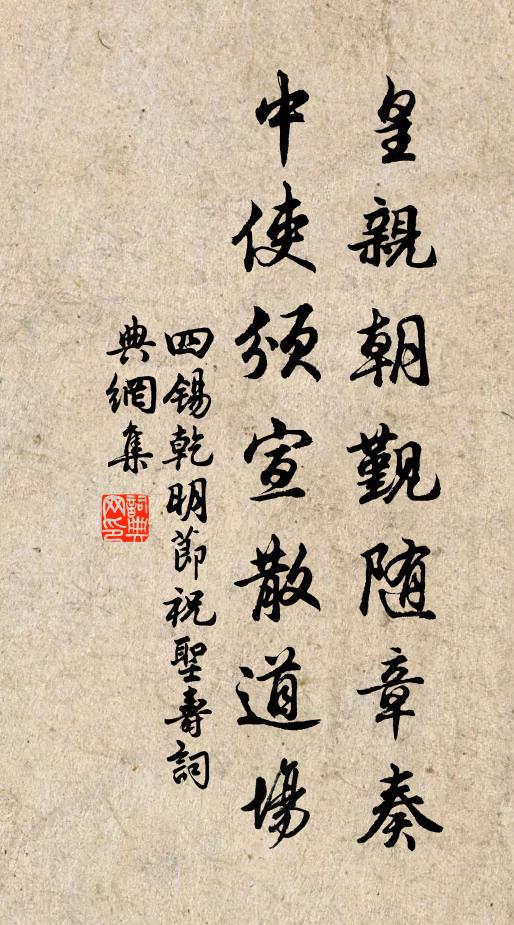 皇親朝覲随章奏
中使頒宣散道場
四錫乾明節祝聖壽詞
典網集
詞典网印